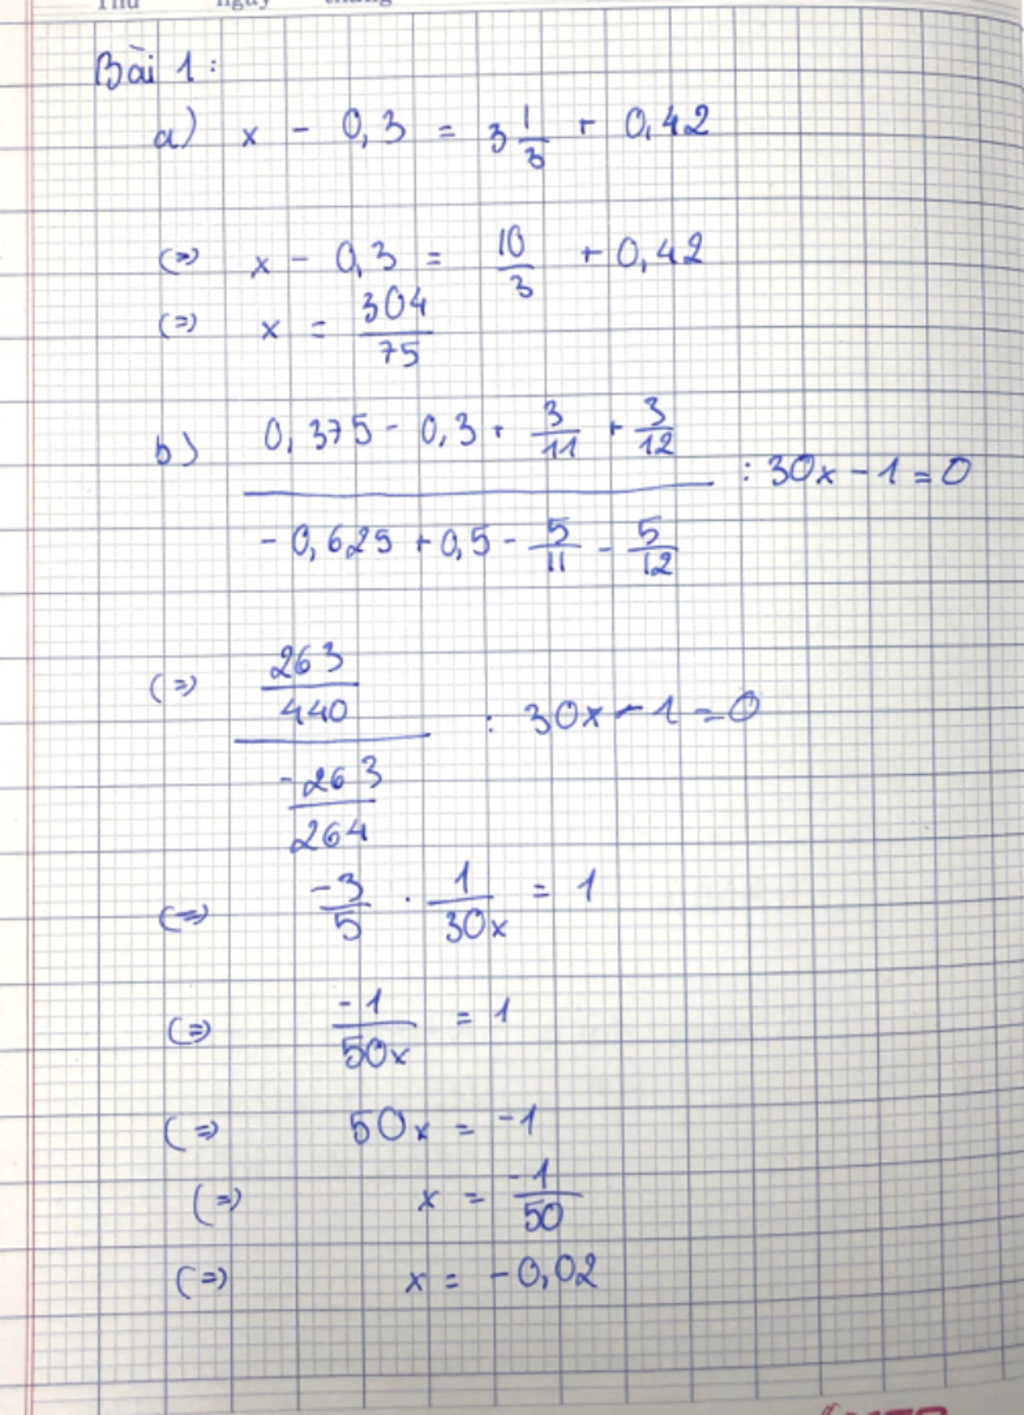 Thứ ngày tháng
Bài 1:
a) x - 0,3 = 3 1/3 + 0,42
(=) x - 0,3 = 10/3 + 0,42
(=) x = 304/75
b) (0,375 - 0,3 + 3/11 + 3/12) / (-0,625 + 0,5 - 5/11 - 5/12) : 30x - 1 = 0
(=) (263/440) / (-263/264) : 30x - 1 = 0
(=) -3/5 . 1/30x = 1
(=) -1/50x = 1
(=) 50x = -1
(=) x = -1/50
(=) x = -0,02